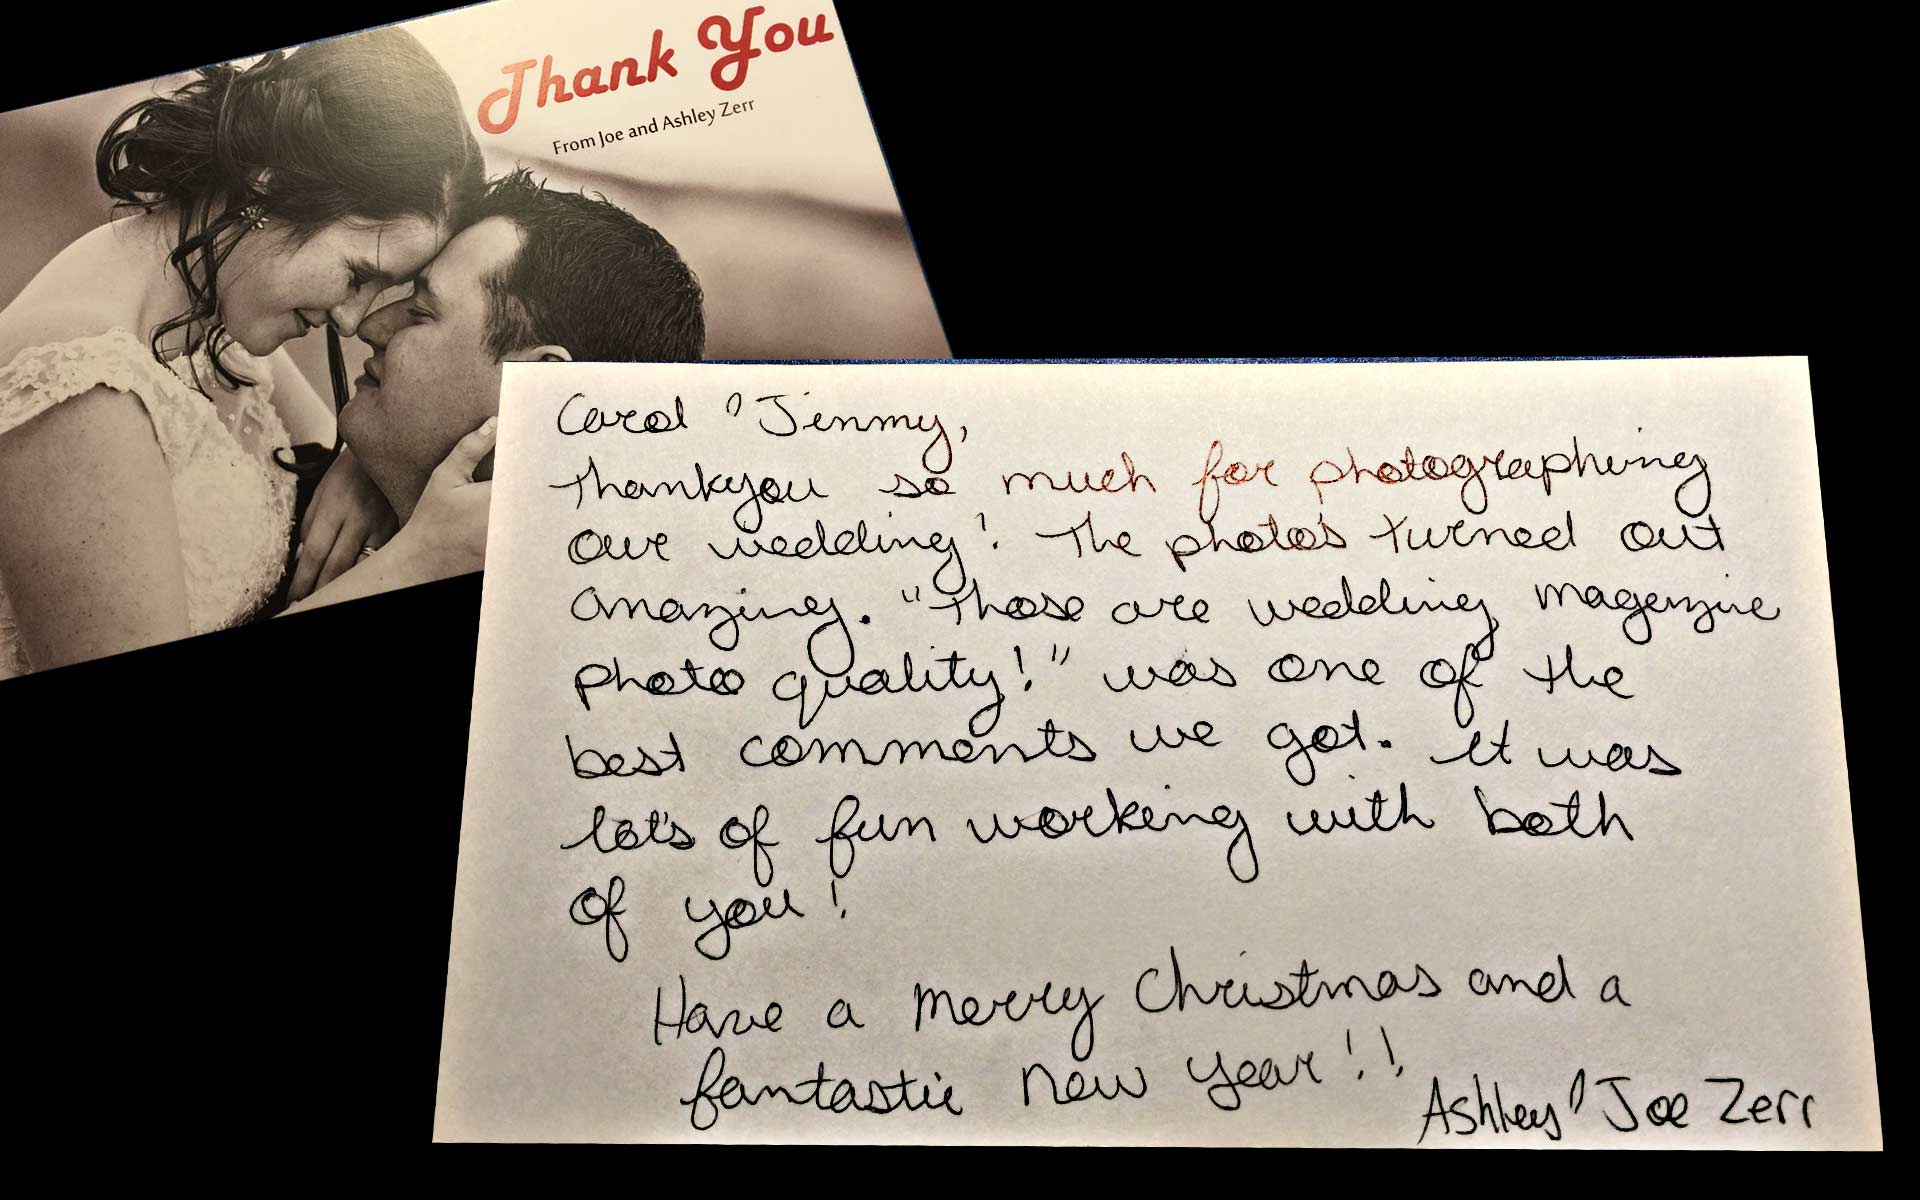 Thank You
From Joe and Ashley Zerr
Carol & Jimmy,
Thankyou so much for photographing
our wedding! The photo's turned out
amazing. "Those are wedding magazine
photo quality!" was one of the
best comments we got. It was
lot's of fun working with both
of you!
Have a merry Christmas and a
fantastic New Year!!
Ashley & Joe Zerr